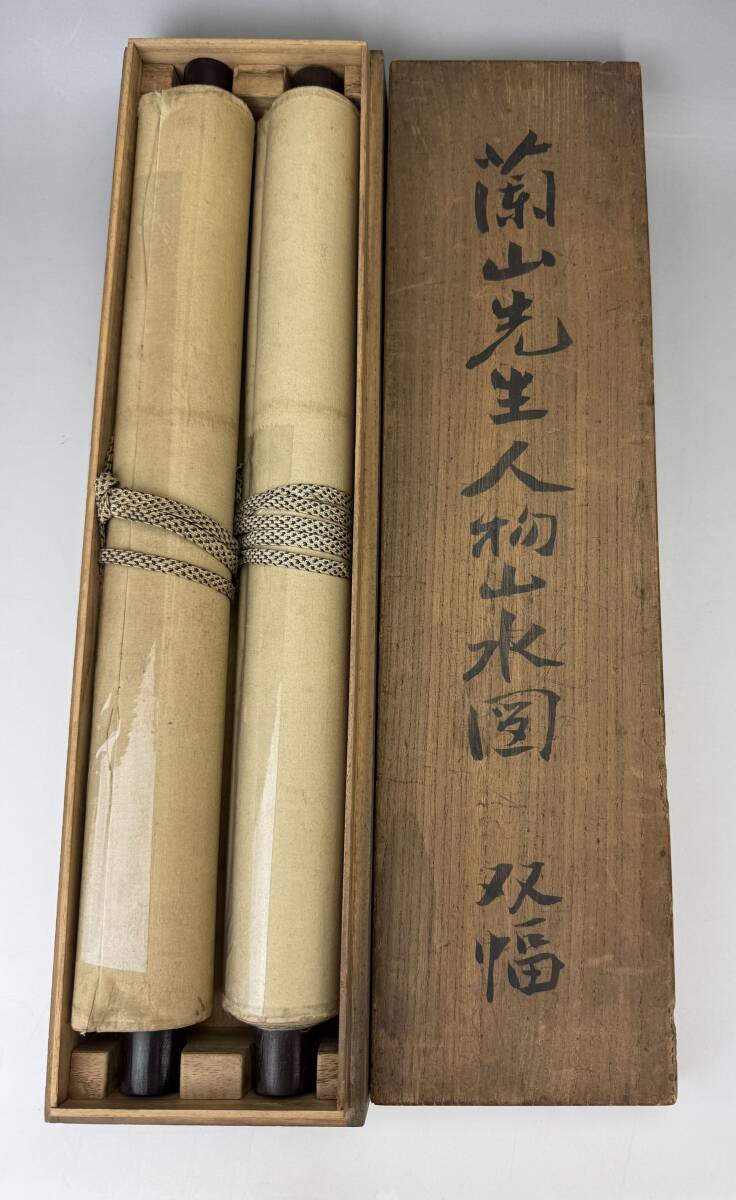 蘭山先生人物山水図 双幅